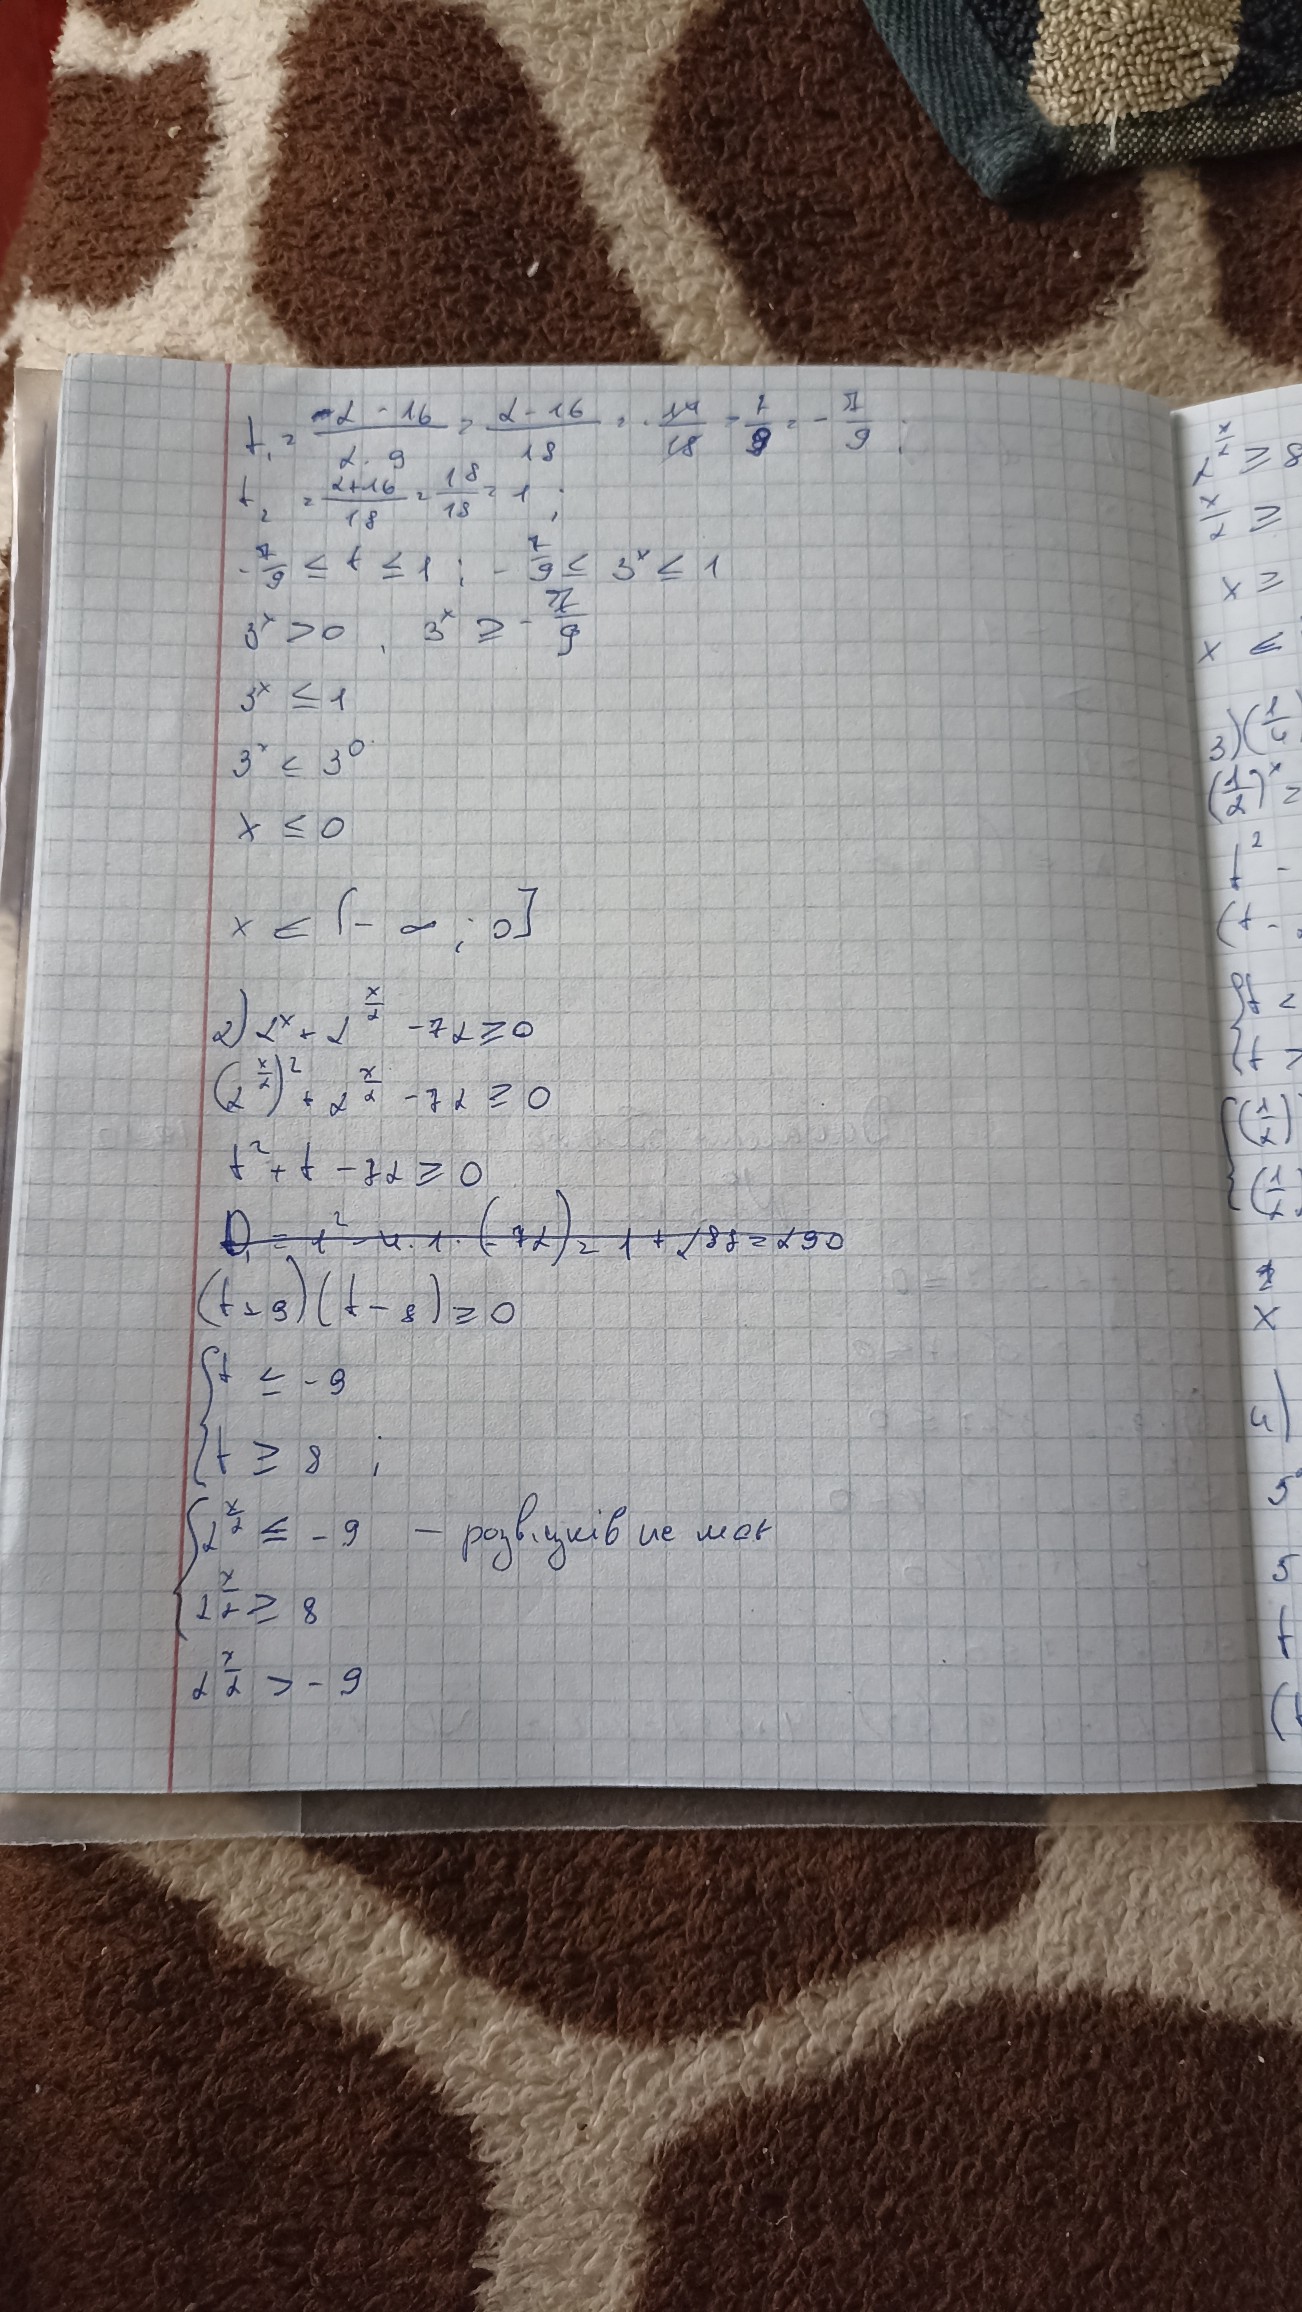 t₁ = -2-16/2·9 = 2-16/18 = -14/18 = 7/9 = -7/9 ;
t₂ = 2+16/18 = 18/18 = 1 ;
-7/9 ≤ t ≤ 1 ; -7/9 ≤ 3ˣ ≤ 1
3ˣ > 0 , 3ˣ ≥ -7/9
3ˣ ≤ 1
3ˣ ≤ 3⁰
x ≤ 0
x ∈ [-∞ ; 0]
2) 2ˣ + 2^(x/2) - 72 ≥ 0
(2^(x/2))² + 2^(x/2) - 72 ≥ 0
t² + t - 72 ≥ 0
D = 1² - 4·1·(-72) = 1 + 288 = 290
(t+9)(t-8) ≥ 0
{ t ≤ -9
t ≥ 8 ;
{ 2^(x/2) ≤ -9 — розв'язків не має
2^(x/2) ≥ 8
2^(x/2) > -9
2^(x/2) ≥ 8
x/2 ≥
x ≥
x ∈
3) (1/4)
(1/2)ˣ =
t² -
(t -
{ t <
t >
{ (1/2)
(1/2)
x
4)
5
5
t
(t